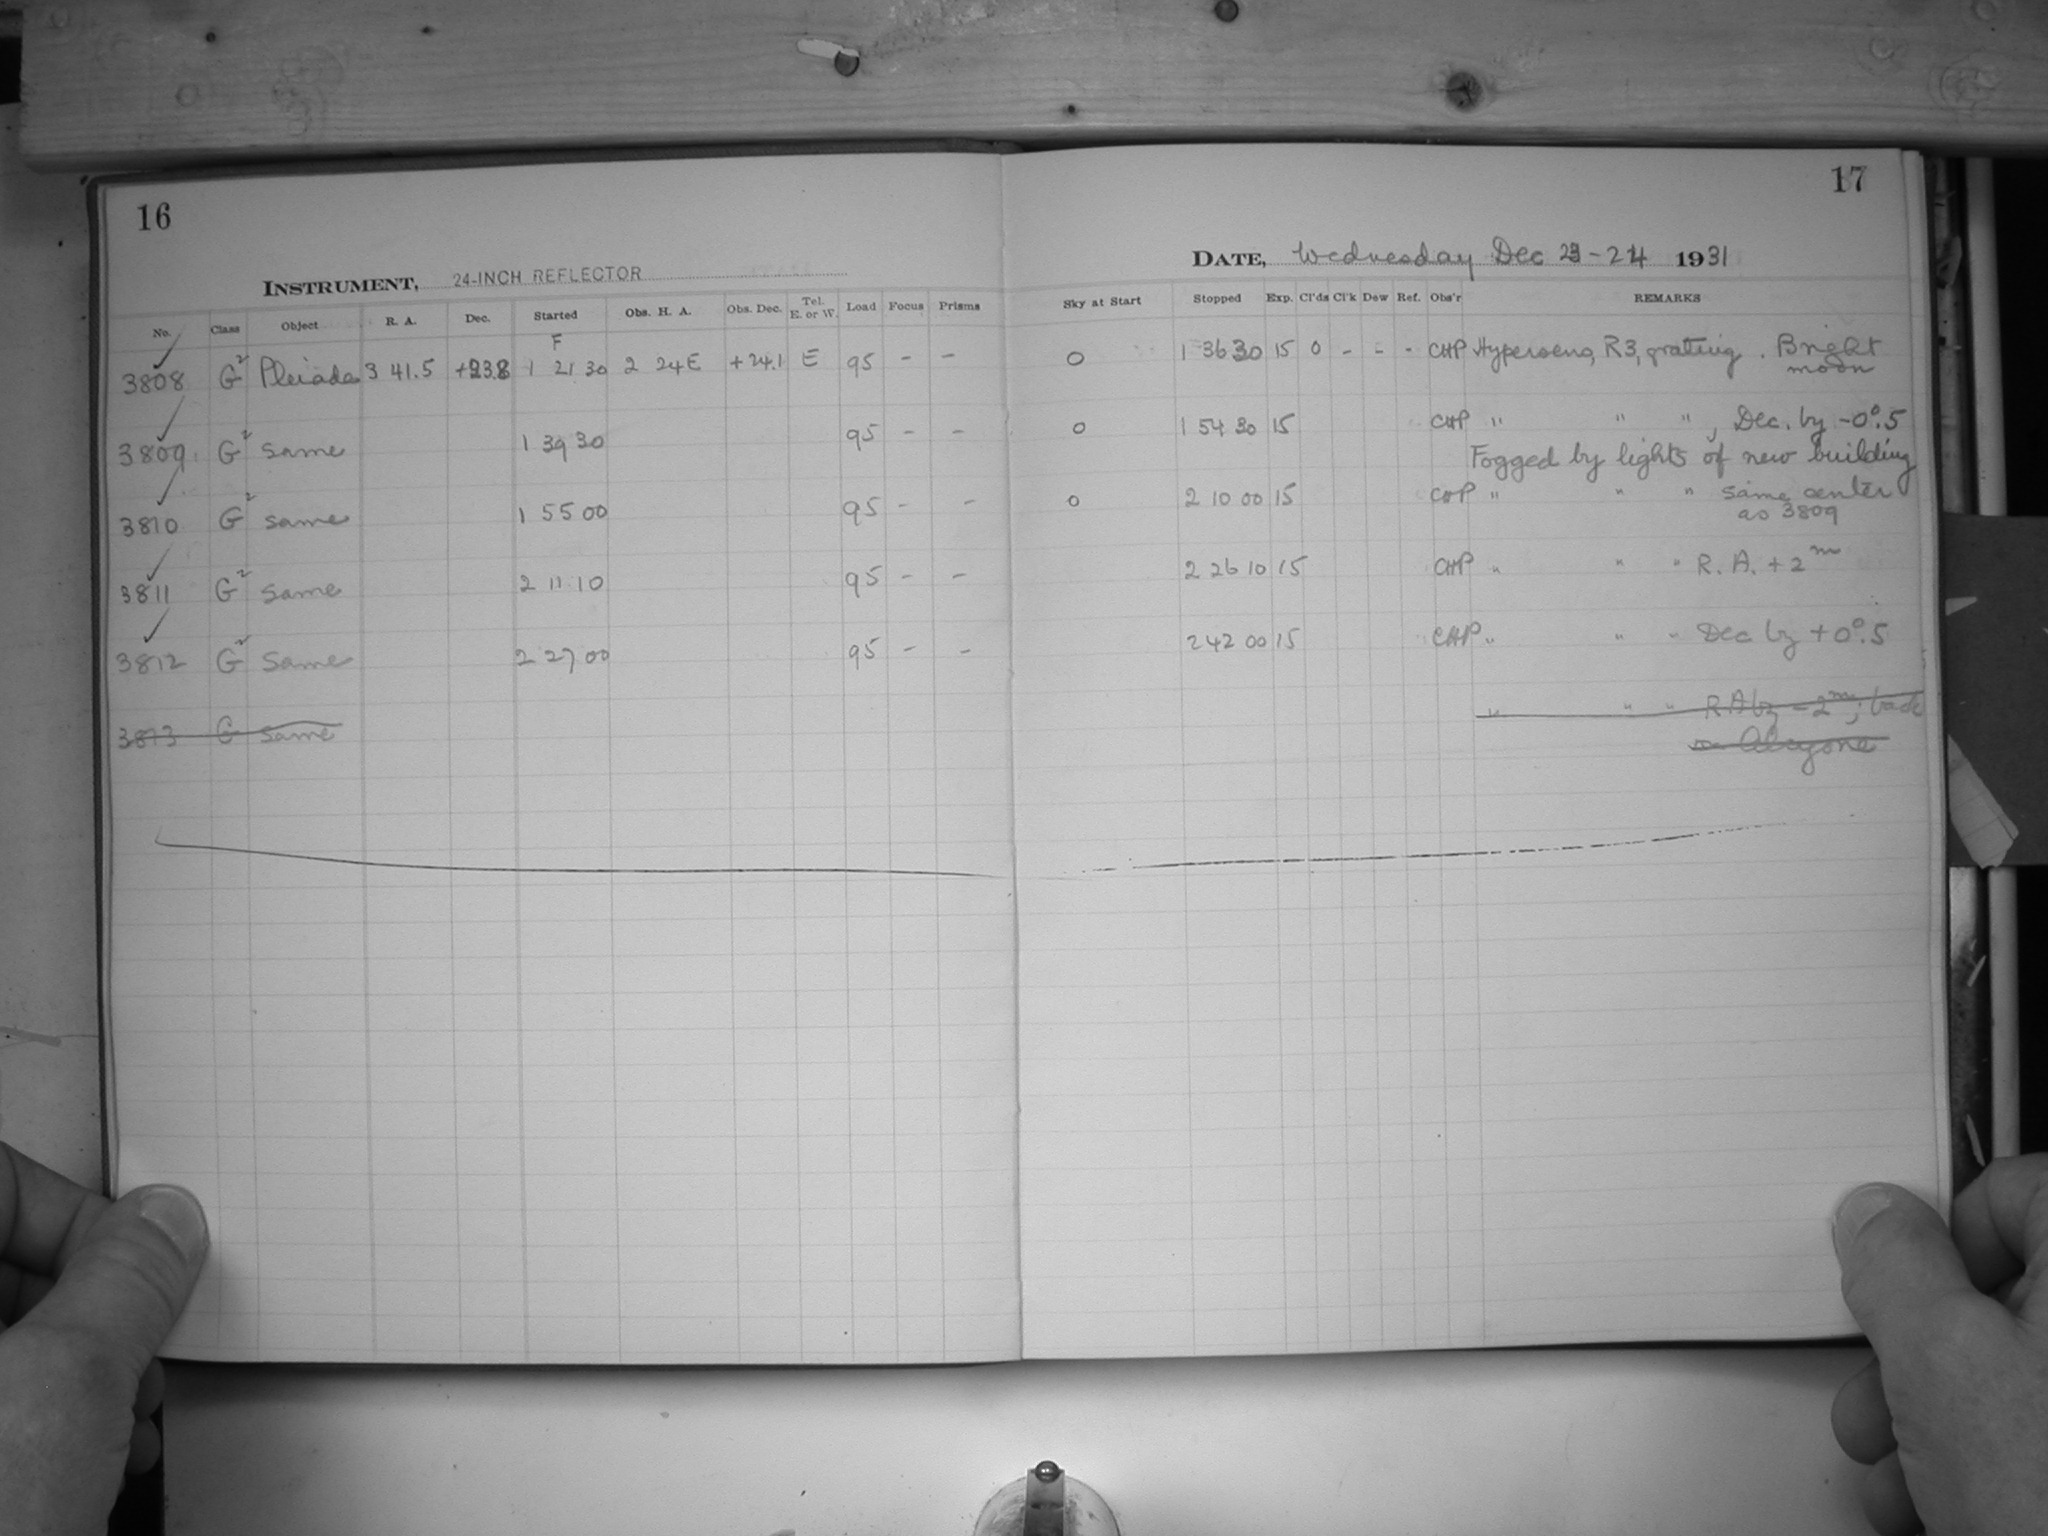 16
17
INSTRUMENT, 24-INCH REFLECTOR
DATE, Wednesday Dec 23-24 1931
No. Class Object R. A. Dec. Started Obs. H. A. Obs. Dec. Tel. E. or W. Load Focus Prisms Sky at Start Stopped Exp. Cl'ds Cl'k Dew Ref. Obs'r REMARKS
F
3808 G2 Pleiades 3 41.5 +23.8 1 21 30 2 24E +24.1 E 95 - - 0 1 36 30 15 0 - - - CHP Hypersens, R3, grating. Bright
moon
3809 G2 same 1 39 30 95 - - 0 1 54 30 15 CHP " " ", Dec. by -0°.5
Fogged by lights of new building
3810 G2 same 1 55 00 95 - - 0 2 10 00 15 CHP " " " same center
as 3809
3811 G2 same 2 11 10 95 - - 2 26 10 15 CHP " " " R. A. + 2m
3812 G2 same 2 27 00 95 - - 2 42 00 15 CHP " " " Dec by +0°.5
3813 G same " " " R.A by - 2m; back
on Alcyone